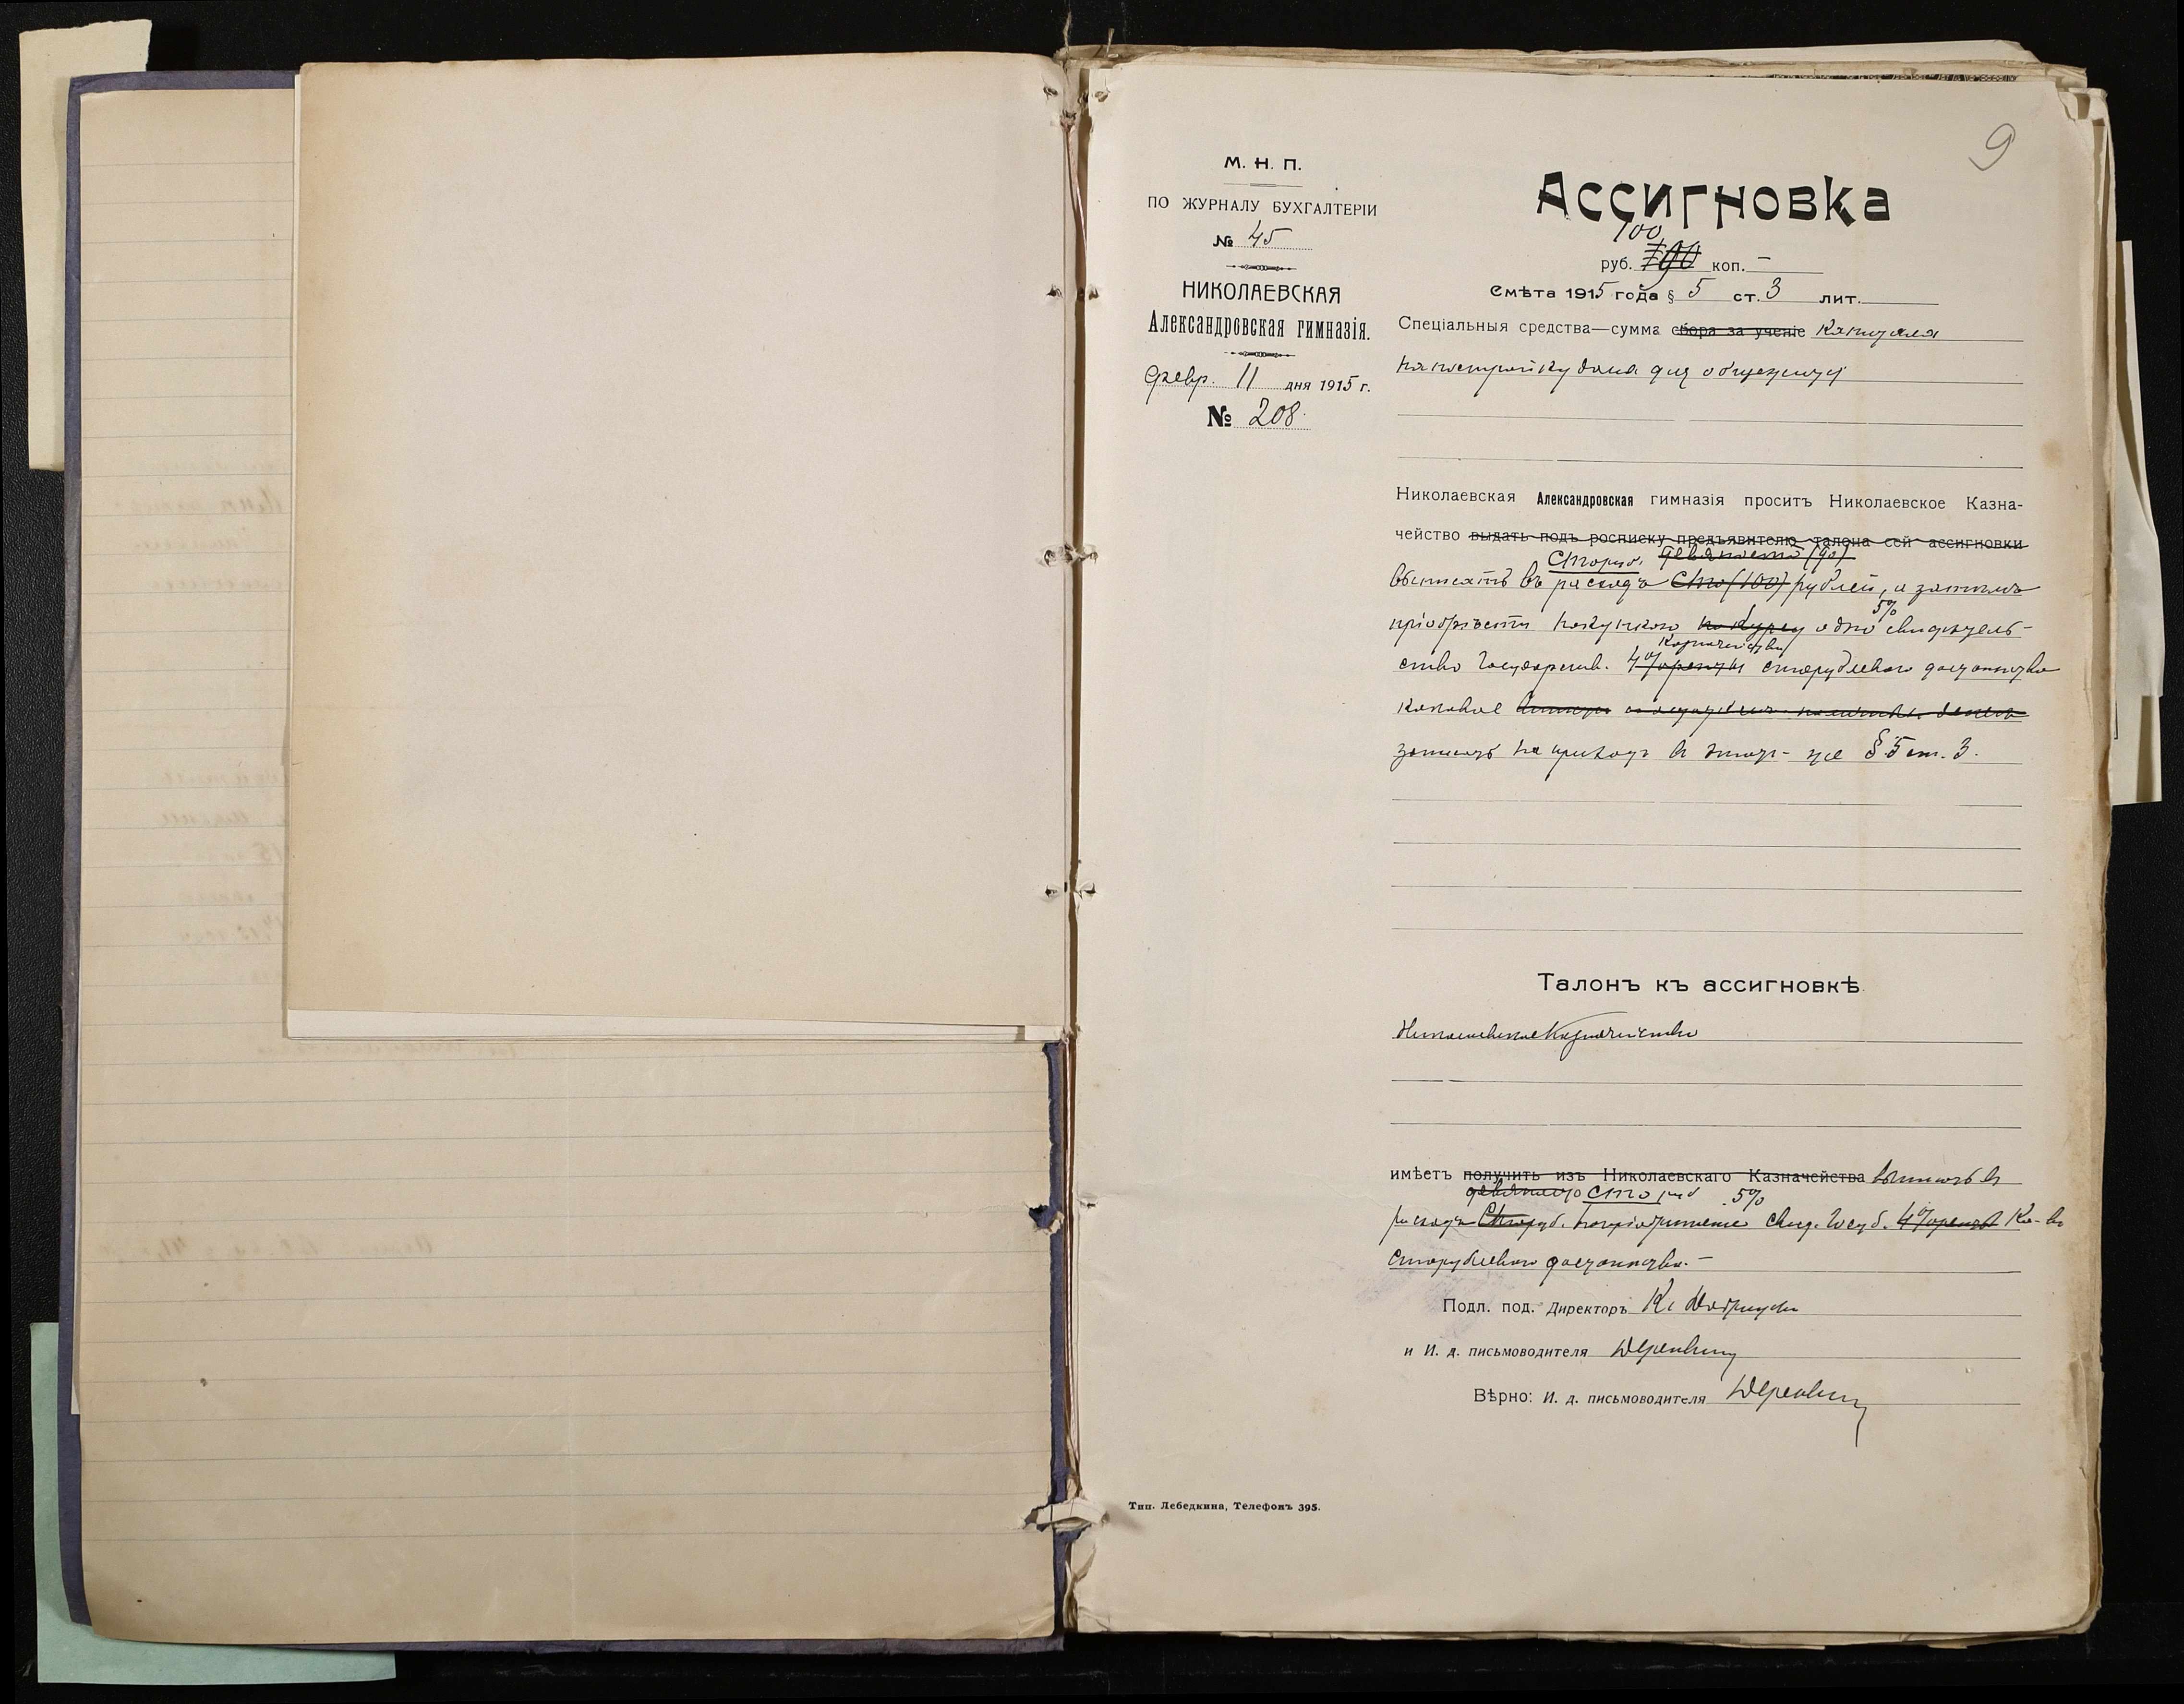 9
М. Н. П.
ПО ЖУРНАЛУ БУХГАЛТЕРІИ
№ 45
НИКОЛАЕВСКАЯ
Александровская гимназія.
Февр. 11 дня 1915 г.
№ 208.
Ассигновка
100
руб. коп. —
Смѣта 1915 года § 5 ст. 3 лит.
Спеціальныя средства—сумма сбора за ученіе капитала
на постройку дома для общежитія
Николаевская Александровская гимназія проситъ Николаевское Казна-
чейство выдать подъ росписку предъявителю талона сей ассигновки
Сто руб. девяносто (90)
выписать въ расходъ Сто (100) рублей, а затѣмъ
5%
пріобрѣсти покупкою по курсу одно свидѣтель-
Казначейства
ство Государств. 4% ренты сторублеваго достоинства
каковое
записать на приходъ въ тотъ-же § 5 ст. 3.
Талонъ къ ассигновкѣ
Николаевское Казначейство
имѣетъ получить изъ Николаевскаго Казначейства выписать въ
девяносто Сто руб 5%
расходъ Сто руб. на пріобрѣтеніе свид. Госуд. 4% ренты Ка-ва
сторублеваго достоинства.—
Подл. под. Директоръ К.
и И. д. письмоводителя
Вѣрно: И. д. письмоводителя
Тип. Лебедкина, Телефонъ 395.